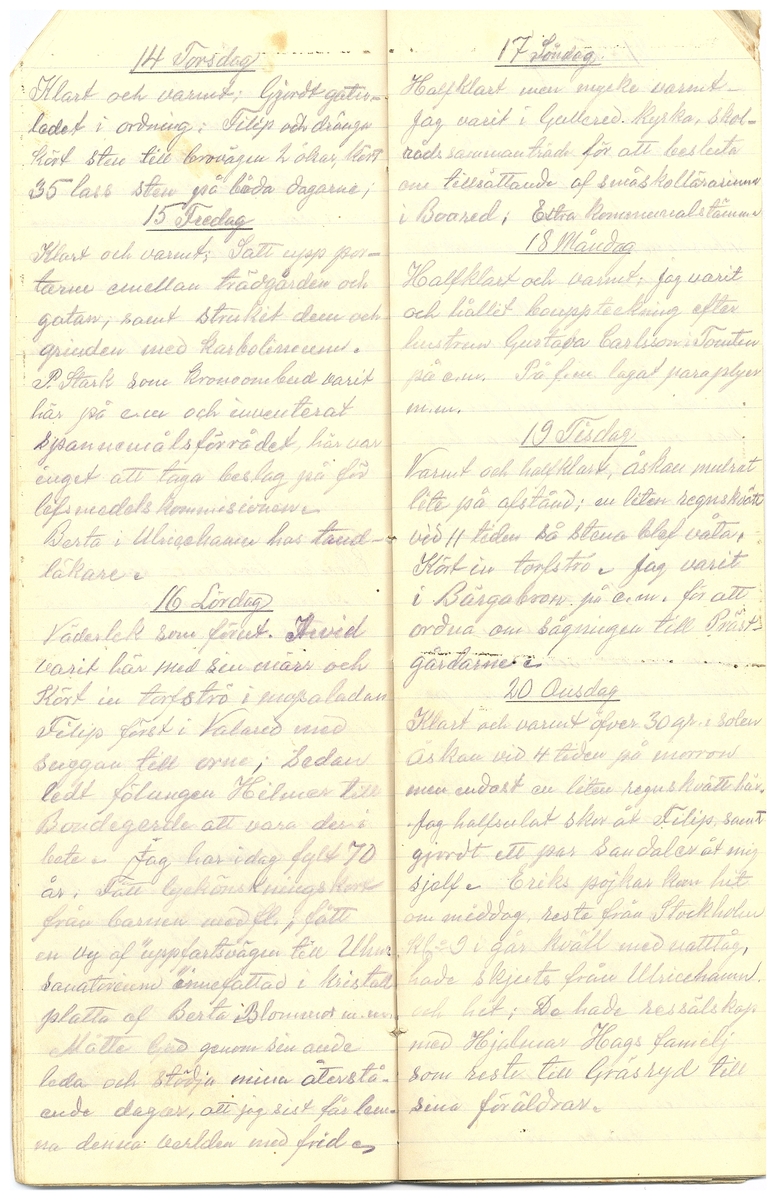 14 Torsdag
Klart och varmt; Gjordt gatu-
ledet i ordning; Filip och drängen
kört sten till brovägen 2 ökar, kört
35 lass sten på båda dagarne;
15 Fredag
Klart och varmt; Satt upp por-
tarne emellan trädgården och
gatan, samt strukit dem och
grinden med karbolineum.
P. Stark som kronoombud varit
här på e.m och inventerat
spannemålsförrådet, här var
inget att taga beslag på för
lifsmedelskommisionen.
Berta i Ulricehamn hos tand-
läkare.
16 Lördag
Väderlek som förut. Arvid
varit här med sin märr och
Kört in torfströ i mosaladan
Filip först i Valared med
suggan till orne; Sedan
ledt fölungen Hilmer till
Bondegärde att vara der i
bete. Jag har i dag fylt 70
år. Fått lyckönskningskort
från barnen med fl.; fått
en vy af "uppfartsvägen till Ulric.
sanatorium" innefattad i kristall
platta af Berta; Blommor m.m.
Måtte Gud genom sin ande
leda och stödja mina återstå-
ende dagar, att jag sist får läm-
na denna verlden med frid.
17 Söndag
Halfklart men mycke varmt.
Jag varit i Gullered. Kyrka, skol-
rådssammanträde för att besluta
om tillsättande af småskollärarinna
i Boared; Extra kommunalstämma
18 Måndag
Halfklart och varmt; jag varit
och hållit bouppteckning efter
hustrun Gustava Carlsson i Tomten
på e.m. På f.m lagat paraplyer
m.m.
19 Tisdag
Varmt och halfklart, åskan mulrat
lite på afstånd; en liten regnskvätt
vid 11 tiden så stena blef våta.
Kört in torfströ. Jag varit
i Bärgabron på e.m. för att
ordna om sågningen till Präst-
gårdarne.
20 Onsdag
Klart och varmt öfver 30 gr. i solen
Åskan vid 4 tiden på morron
men endast en liten regnskvätt här.
Jag halfsulat skor åt Filip, samt
gjordt ett par Sandaler åt mig
sjelf. Eriks pojkar kom hit
om middag, reste från Stockholm
kl. 9 i går kväll med nattåg,
hade skjuts från Ulricehamn
och hit; De hade ressälskap
med Hjalmar Hags familj
som reste till Gräsryd till
sina föräldrar.